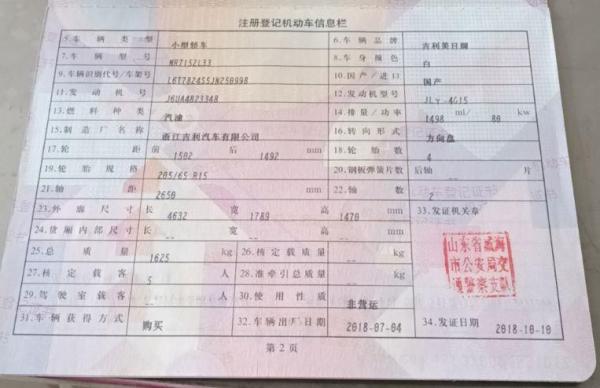 注册登记机动车信息栏
5.车辆类型 小型轿车 6.车辆品牌 吉利美日牌
7.车辆型号 MR7152L33 8.车身颜色 白
9.车辆识别代号/车架号 L6T7824S5JN250998 10.国产/进口 国产
11.发动机号 J6UA4823348 12.发动机型号 JLγ-4G15
13.燃料种类 汽油 14.排量/功率 1498 ml/ 80 kw
15.制造厂名称 浙江吉利汽车有限公司 16.转向形式 方向盘
17.轮距 前 1502 后 1492 mm 18.轮胎数 4
19.轮胎规格 205/65 R15 20.钢板弹簧片数 后轴 -- 片
21.轴距 2650 mm 22.轴数 2
23.外廓尺寸 长 4632 宽 1789 高 1470 mm 33.发证机关章
24.货厢内部尺寸 长 -- 宽 -- 高 -- mm
25.总质量 1625 kg 26.核定载质量 -- kg
27.核定载客 5 人 28.准牵引总质量 -- kg
29.驾驶室载客 -- 人 30.使用性质 非营运
31.车辆获得方式 购买 32.车辆出厂日期 2018-07-04 34.发证日期 2018-10-10
山东省威海
市公安局交
通警察支队
第2页